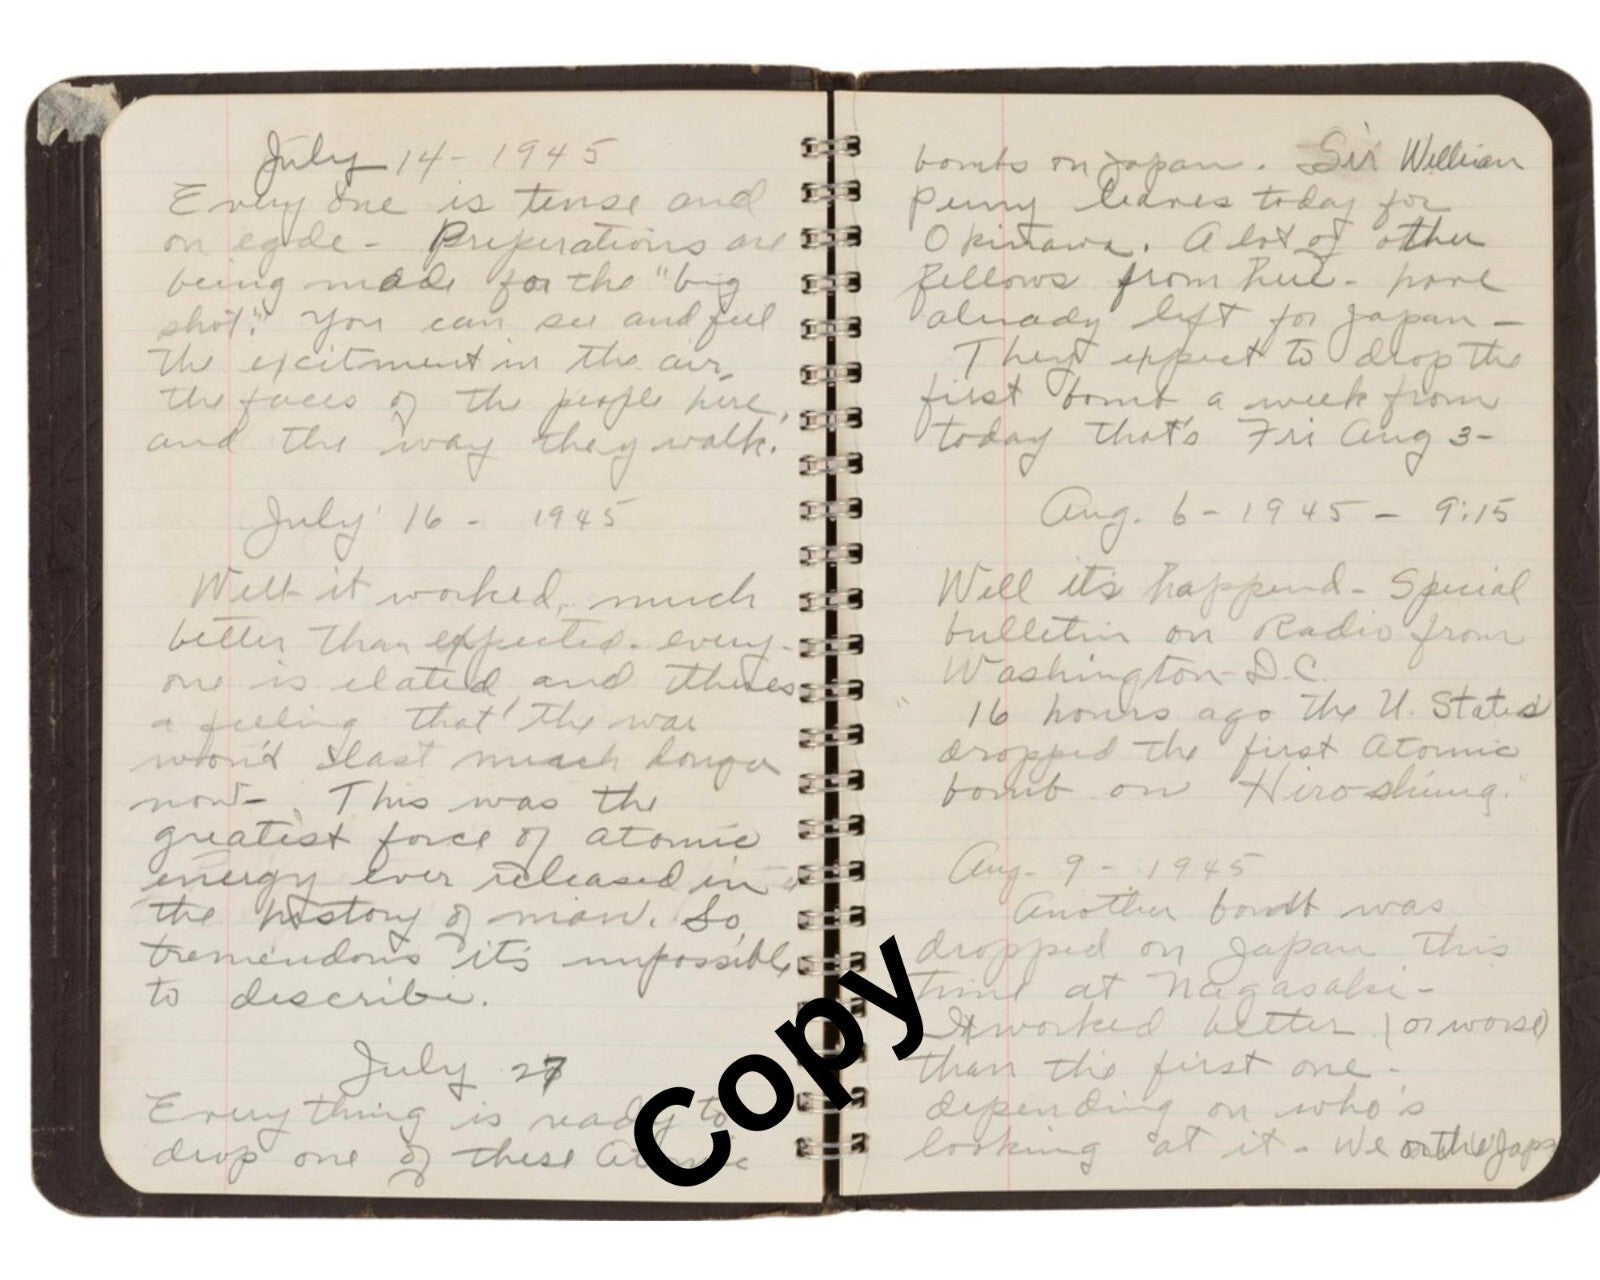 July 14 - 1945
Every one is tense and
on egde - Preperations are
being made for the "big
shot". You can see and feel
the excitment in the air,
the faces of the people here,
and the way they walk.
July 16 - 1945
Well it worked, much
better than expected - every-
one is elated and theres
a feeling that the war
won't last much longer
now -. This was the
greatist force of atomic
energy ever released in
the history of man. So
tremendous it's impossible
to describe.
July 27
Every thing is ready to
drop one of these Atomic
bombs on Japan. Sir William
Penny leaves today for
Okinawa. A lot of other
fellows from here - have
already left for Japan -
They expect to drop the
first bomb a week from
today that's Fri Aug 3 -
Aug. 6 - 1945 - 9:15
Well its happend - Special
bulletin on Radio from
Washington D.C.
" 16 hours ago the U. States
dropped the first Atomic
bomb on Hiroshima."
Aug. 9 - 1945
Another bomb was
dropped on Japan this
time at Nagasaki -
It worked better (or worse)
than the first one -
depending on who's
looking at it - We or the Japs
Copy